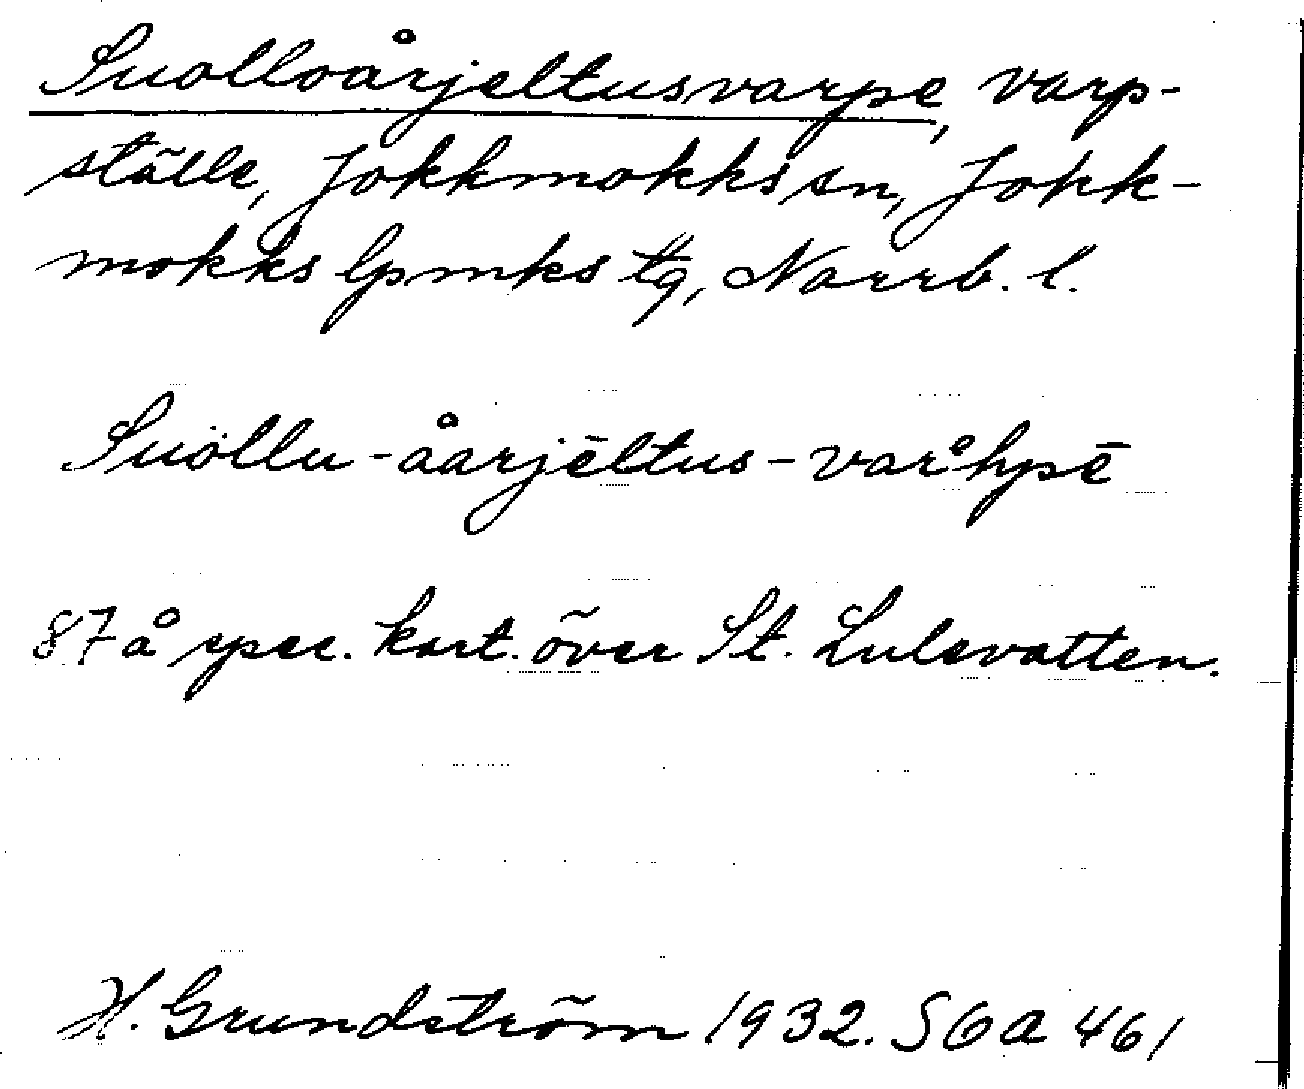 Suolloårjeltusvarpe, varp-
ställe, Jokkmokks sn, Jokk-
mokks lpmks tg, Norrb. l.
Suollu-åarjēltus-varᵒhpē
87 å spec. kart. över St. Lulevatten.
H. Grundström 1932. SOA 461